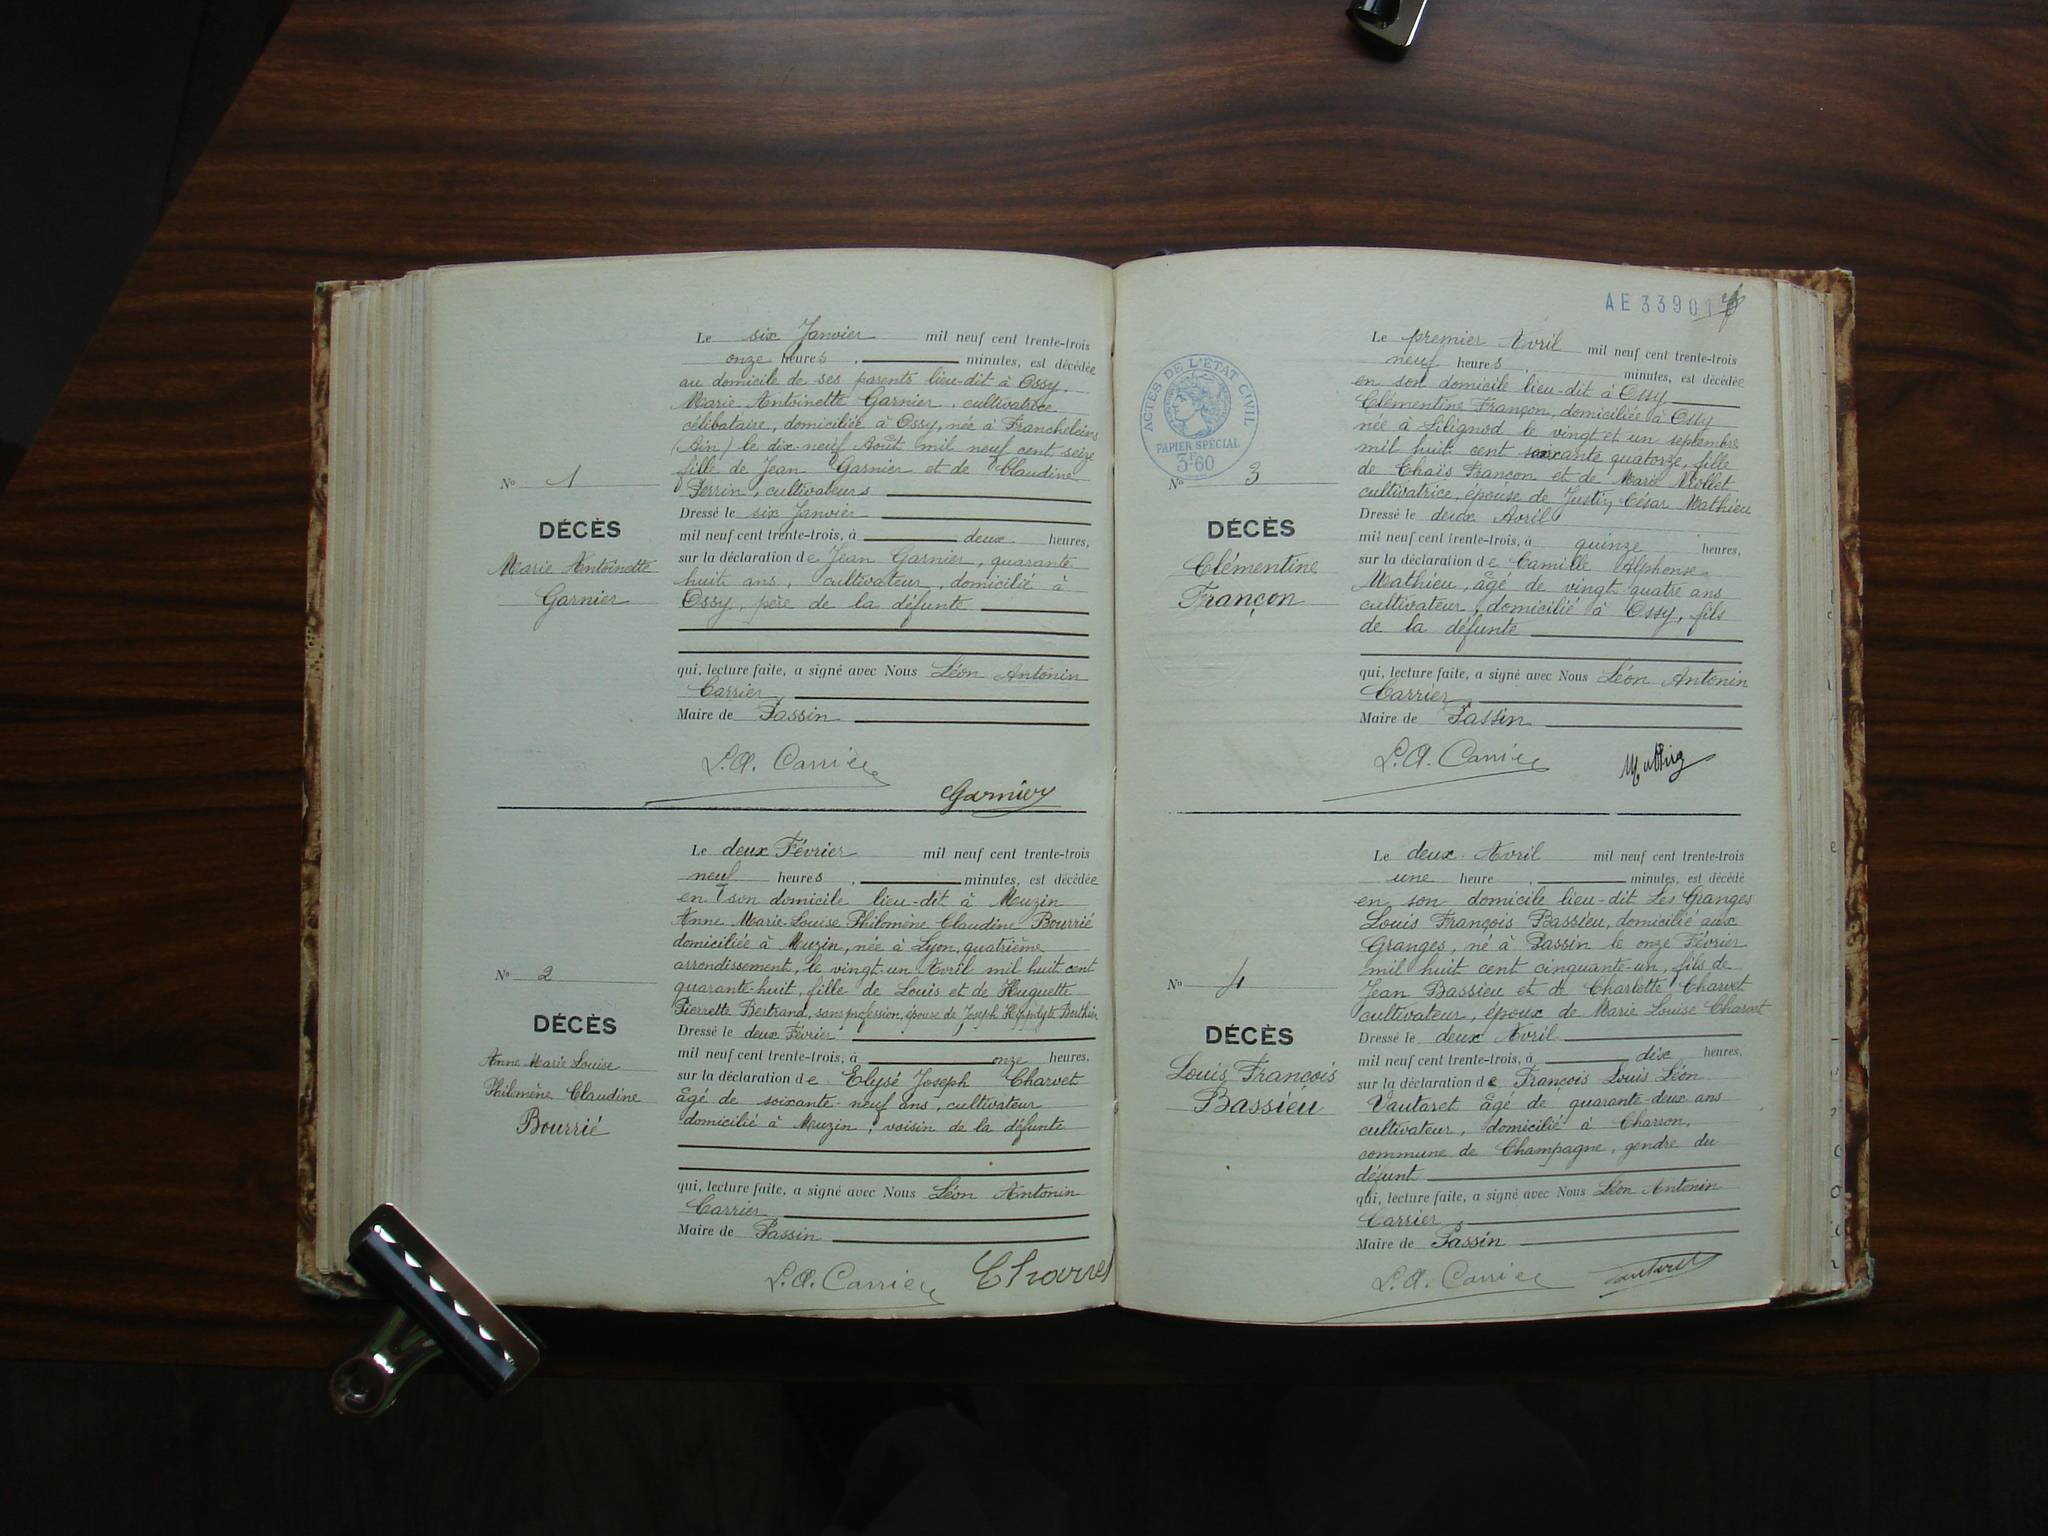 Le six Janvier mil neuf cent trente-trois
onze heures, minutes, est décédée
au domicile de ses parents lieu-dit à Ossy.
Marie Antoinette Garnier, cultivatrice
célibataire, domiciliée à Ossy, née à Francheleins
(Ain) le dix-neuf Août mil neuf cent seize
fille de Jean Garnier et de Claudine
Perrin, cultivateurs
Nº 1
DÉCÈS
Marie Antoinette
Garnier
Dressé le six Janvier
mil neuf cent trente-trois, à deux heures,
sur la déclaration de Jean Garnier, quarante
huit ans, cultivateur, domicilié à
Ossy, père de la défunte
qui, lecture faite, a signé avec Nous Léon Antonin
Carrier,
Maire de Passin
L.A. Carrier
Garnier
Le deux Février mil neuf cent trente-trois
neuf heures, minutes, est décédée
en son domicile lieu-dit à Muzin
Anne Marie-Louise Philomène Claudine Bourrié
domiciliée à Muzin, née à Lyon, quatrième
arrondissement, le vingt-un Avril mil huit cent
quarante-huit, fille de Louis et de Huguette
Pierrette Bertrand, sans profession, épouse de Joseph Hippolyte Berthier
Nº 2
DÉCÈS
Anne Marie Louise
Philomène Claudine
Bourrié
Dressé le deux Février
mil neuf cent trente-trois, à onze heures,
sur la déclaration de Elysé Joseph Charvet
âgé de soixante-neuf ans, cultivateur
domicilié à Muzin, voisin de la défunte
qui, lecture faite, a signé avec Nous Léon Antonin
Carrier
Maire de Passin
L.A. Carrier
Charvet
AE 33901
ACTES DE L'ÉTAT CIVIL
PAPIER SPÉCIAL
3F60
Le premier Avril mil neuf cent trente-trois
neuf heures, minutes, est décédée
en son domicile lieu-dit à Ossy
Clémentine Françon, domiciliée à Ossy
née à Lilignod le vingt et un septembre
mil huit cent soixante quatorze, fille
de Chaïs Françon et de Marie Mollet
cultivatrice, épouse de Justin César Mathieu
Nº 3
DÉCÈS
Clémentine
Françon
Dressé le deux Avril
mil neuf cent trente-trois, à quinze heures,
sur la déclaration de Camille Alphonse
Mathieu, âgé de vingt-quatre ans
cultivateur, domicilié à Ossy, fils
de la défunte
qui, lecture faite, a signé avec Nous Léon Antonin
Carrier
Maire de Passin
L.A. Carrier
Le deux Avril mil neuf cent trente-trois
une heure, minutes, est décédé
en son domicile lieu-dit Les Granges
Louis François Bassieu, domicilié aux
Granges, né à Passin le onze Février
mil huit cent cinquante-un, fils de
Jean Bassieu et de Charlotte Charvet
cultivateur, époux de Marie Louise Charvet
Nº 4
DÉCÈS
Louis François
Bassieu
Dressé le deux Avril
mil neuf cent trente-trois, à dix heures,
sur la déclaration de François Louis Léon
Vautaret âgé de quarante-deux ans
cultivateur, domicilié à Charron,
commune de Champagne, gendre du
défunt
qui, lecture faite, a signé avec Nous Léon Antonin
Carrier
Maire de Passin
L.A. Carrier
Vautaret